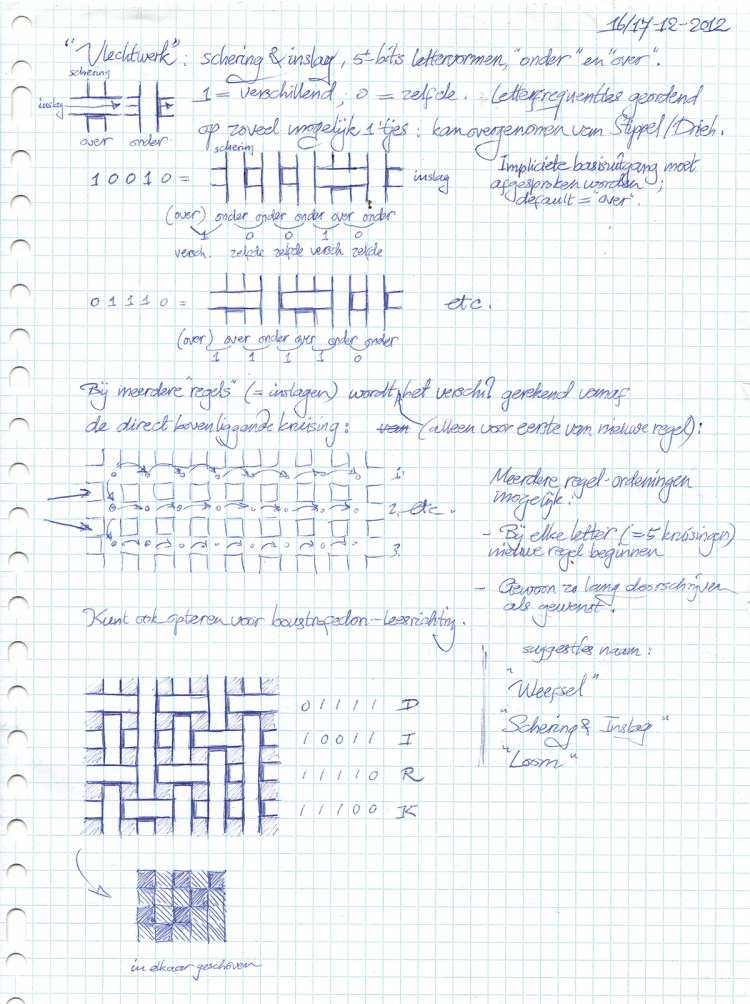 16/17-12-2012
"Vlechtwerk": schering & inslag, 5-bits lettervormen, "onder" en "over".
schering
inslag
over onder
1 = verschillend, 0 = zelfde. Letterfrequenties geordend
op zoveel mogelijk 1'tjes: kan overgenomen van Stippel/Drieh.
schering
1 0 0 1 0 =
inslag
(over) onder onder onder over onder
1 0 0 1 0
versch. zelfde zelfde versch zelfde
Impliciete basisuitgang moet
afgesproken worden;
default = "over".
0 1 1 1 0 =
etc.
(over) over onder over onder onder
1 1 1 1 0
Bij meerdere "regels" (= inslagen) wordt het verschil gerekend vanaf
de direct bovenliggende kruising: van (alleen voor eerste van nieuwe regel):
1.
2. etc.
3.
Meerdere regel-ordeningen
mogelijk:
- Bij elke letter (= 5 kruisingen)
nieuwe regel beginnen
- Gewoon zo lang doorschrijven
als gewenst.
Kunt ook opteren voor boustrofedon-leesrichting.
suggesties naam:
"Weefsel"
"Schering & Inslag"
"Loom"
0 1 1 1 1 D
1 0 0 1 1 I
1 1 1 1 0 R
1 1 1 0 0 K
in elkaar geschoven